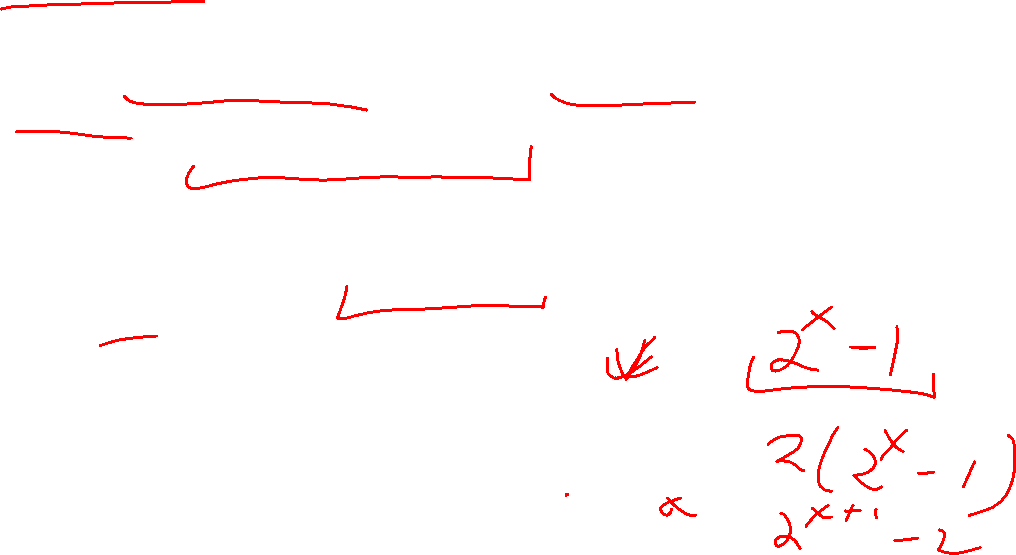 2^x - 1
2(2^x - 1)
2^{x+1} - 2